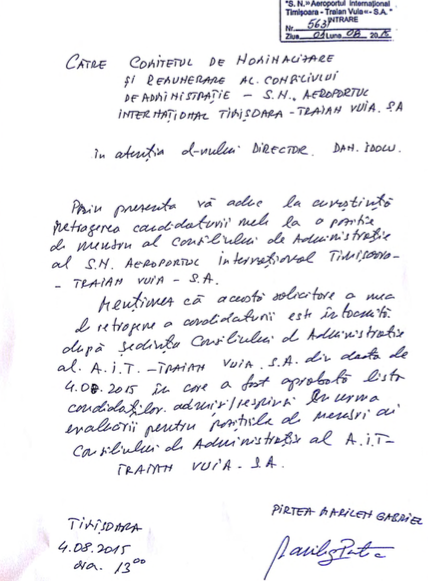 "S.N. "Aeroportul Internațional
Timișoara - Traian Vuia" - S.A."
INTRARE
Nr. 5631
Ziua 04 Luna 08 20 15
CĂTRE COMITETUL DE NOMINALIZARE
ȘI REMUNERARE AL CONSILIULUI
DE ADMINISTRAȚIE - S.N. AEROPORTUL
INTERNAȚIONAL TIMIȘOARA - TRAIAN VUIA. SA
În atenția d-nului DIRECTOR. DAN. IDOLU.
Prin prezenta vă aduc la cunoștință
retragerea candidaturii mele la o poziție
de membru al Consiliului de Administrație
al S.N. AEROPORTUL Internațional Timișoara-
- TRAIAN VUIA - S.A.
Menționez că această solicitare a mea
de retragere a candidaturii este întocmită
după ședința Consiliului de Administrație
al. A.I.T. - TRAIAN VUIA. S.A. din data de
4.08.2015 în care a fost aprobată lista
candidaților admiși/respinși în urma
evaluării pentru pozițiile de membri ai
Consiliului de Administrație al A.I.T-
TRAIAN VUIA - S.A.
PIRTEA MARILEN GABRIEL
TIMIȘOARA
4.08.2015
ora. 13 00